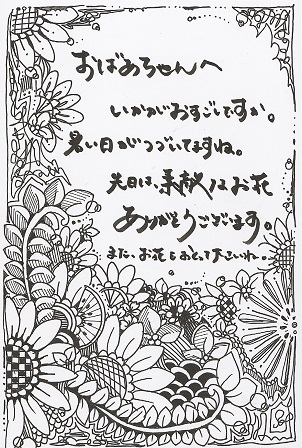 おばあちゃんへ
いかがおすごしですか。
暑い日がつづいてますね。
先日は、素敵なお花
ありがとうございます。
また、お花をおくって下さいね。